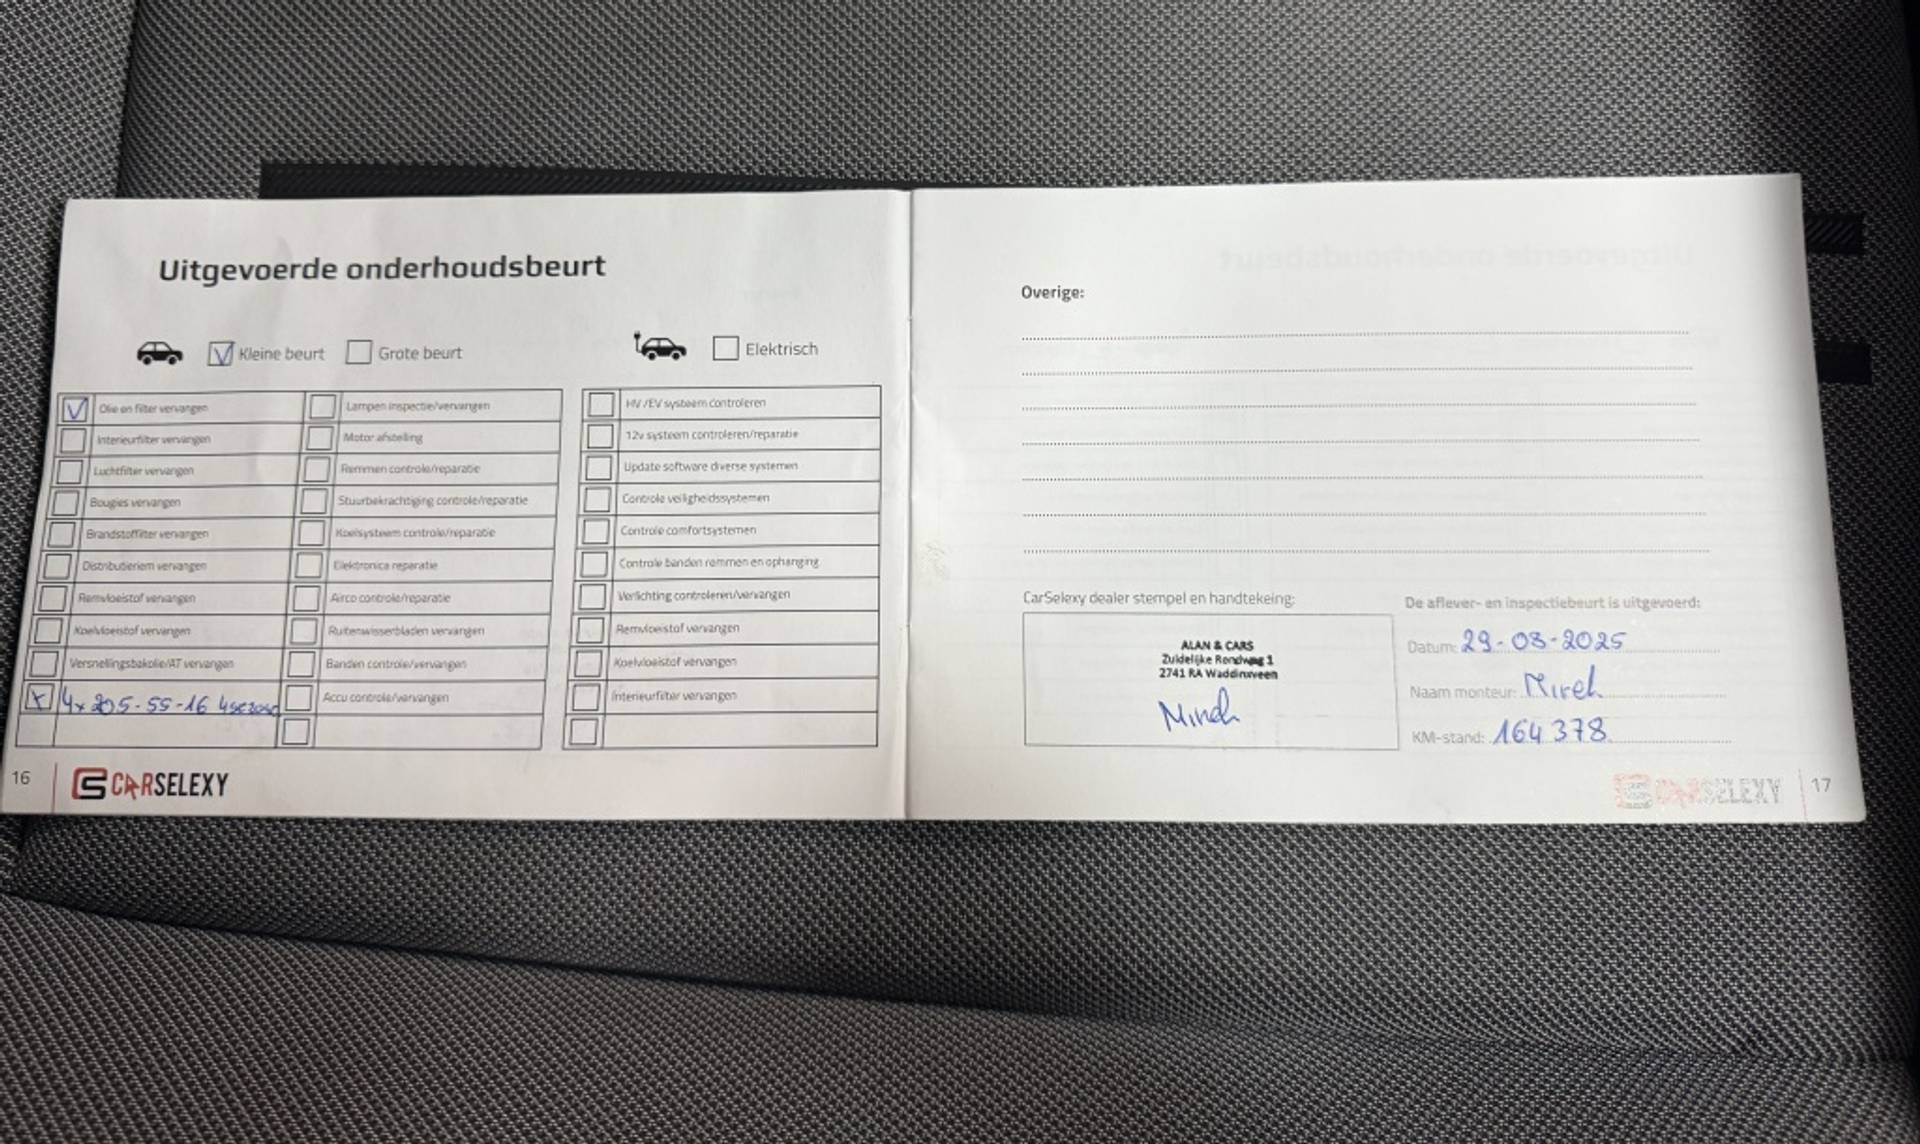 Uitgevoerde onderhoudsbeurt
Kleine beurt Grote beurt Elektrisch
Olie en filter vervangen Lampen inspectie/vervangen HV/EV systeem controleren
Interieurfilter vervangen Motor afstelling 12v systeem controleren/reparatie
Luchtfilter vervangen Remmen controle/reparatie Update software diverse systemen
Bougies vervangen Stuurbekrachtiging controle/reparatie Controle veiligheidssystemen
Brandstoffilter vervangen Koelsysteem controle/reparatie Controle comfortsystemen
Distributieriem vervangen Elektronica reparatie Controle banden remmen en ophanging
Remvloeistof vervangen Airco controle/reparatie Verlichting controleren/vervangen
Koelvloeistof vervangen Ruitenwisserbladen vervangen Remvloeistof vervangen
Versnellingsbakolie/AT vervangen Banden controle/vervangen Koelvloeistof vervangen
4x 205-55-16 Accu controle/vervangen Interieurfilter vervangen
16 CARSELEXY
Overige:
CarSelexy dealer stempel en handtekeing:
ALAN & CARS
Zuidelijke Rondweg 1
2741 RA Waddinxveen
De aflever- en inspectiebeurt is uitgevoerd:
Datum: 29-08-2025
Naam monteur:
KM-stand: 164 378
CARSELEXY 17